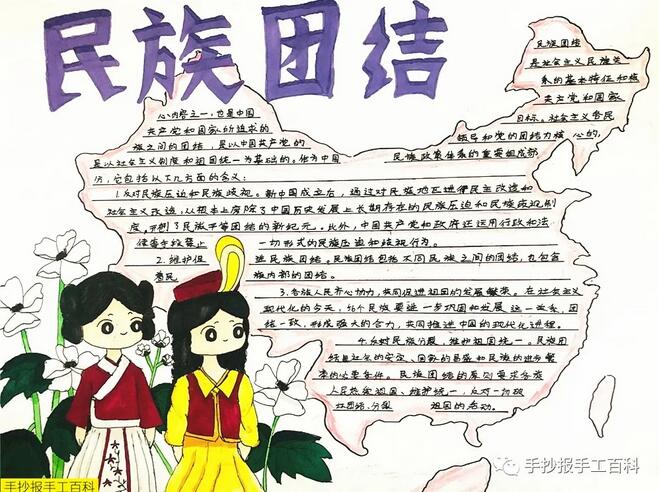 民族团结
民族团结
是社会主义民族关
系的基本特征和核
心内容之一,也是中国
共产党和国家
共产党和国家所追求的
目标。社会主义各民
族之间的团结,是以中国共产党的
领导和党的团结为核心的,
是以社会主义制度和祖国统一为基础的。作为中国
民族政策体系的重要组成部
分,它包括以下几方面的含义:
1.反对民族压迫和民族歧视。新中国成立后,通过对民族地区进行民主改造和
社会主义改造,从根本上废除了中国历史发展上长期存在的民族压迫和民族歧视制
度,开辟了民族平等团结的新纪元。此外,中国共产党和政府还运用行政和法
律等手段禁止
一切形式的民族压迫和歧视行为。
2.维护促
进民族团结。民族团结包括不同民族之间的团结,也包含
族内部的团结。
3.各族人民齐心协力,共同促进祖国的发展繁荣。在社会主义
现代化的今天,各个民族要进一步巩固和发展这一关系,团
结一致,形成强大的合力,共同推进中国的现代化进程。
4.反对民族分裂,维护祖国统一。民族团
结是社会的安定、国家的昌盛和民族的进步繁
荣的必要条件。民族团结的原则要求各族
人民热爱祖国、维护统一,反对一切破
坏团结、分裂
祖国的活动。
手抄报手工百科
手抄报手工百科